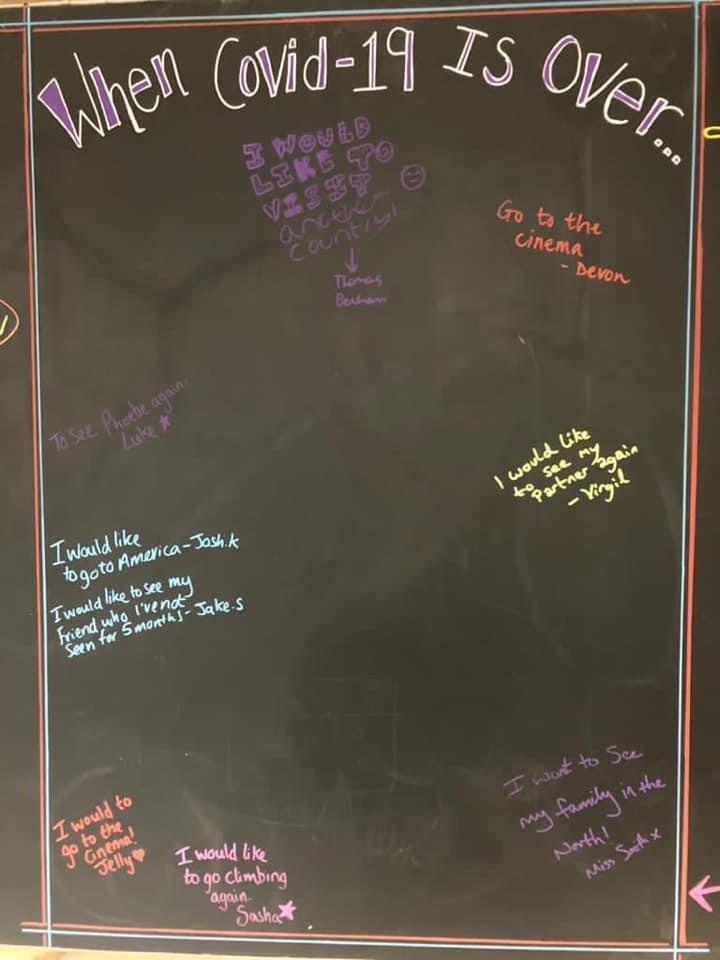 When Covid-19 Is Over...
I WOULD
LIKE TO
VISIT
another
country!
Thomas
Go to the
cinema
- Devon
To see Phoebe again.
Luke
I would like
to see my
partner again
- Virgil
I would like
to go to America - Josh.k
I would like to see my
Friend who I've not
seen for 5 months! - Jake.S
I would to
go to the
Cinema!
Jelly
I would like
to go climbing
again.
Sasha
I want to see
my family in the
North!
Miss x